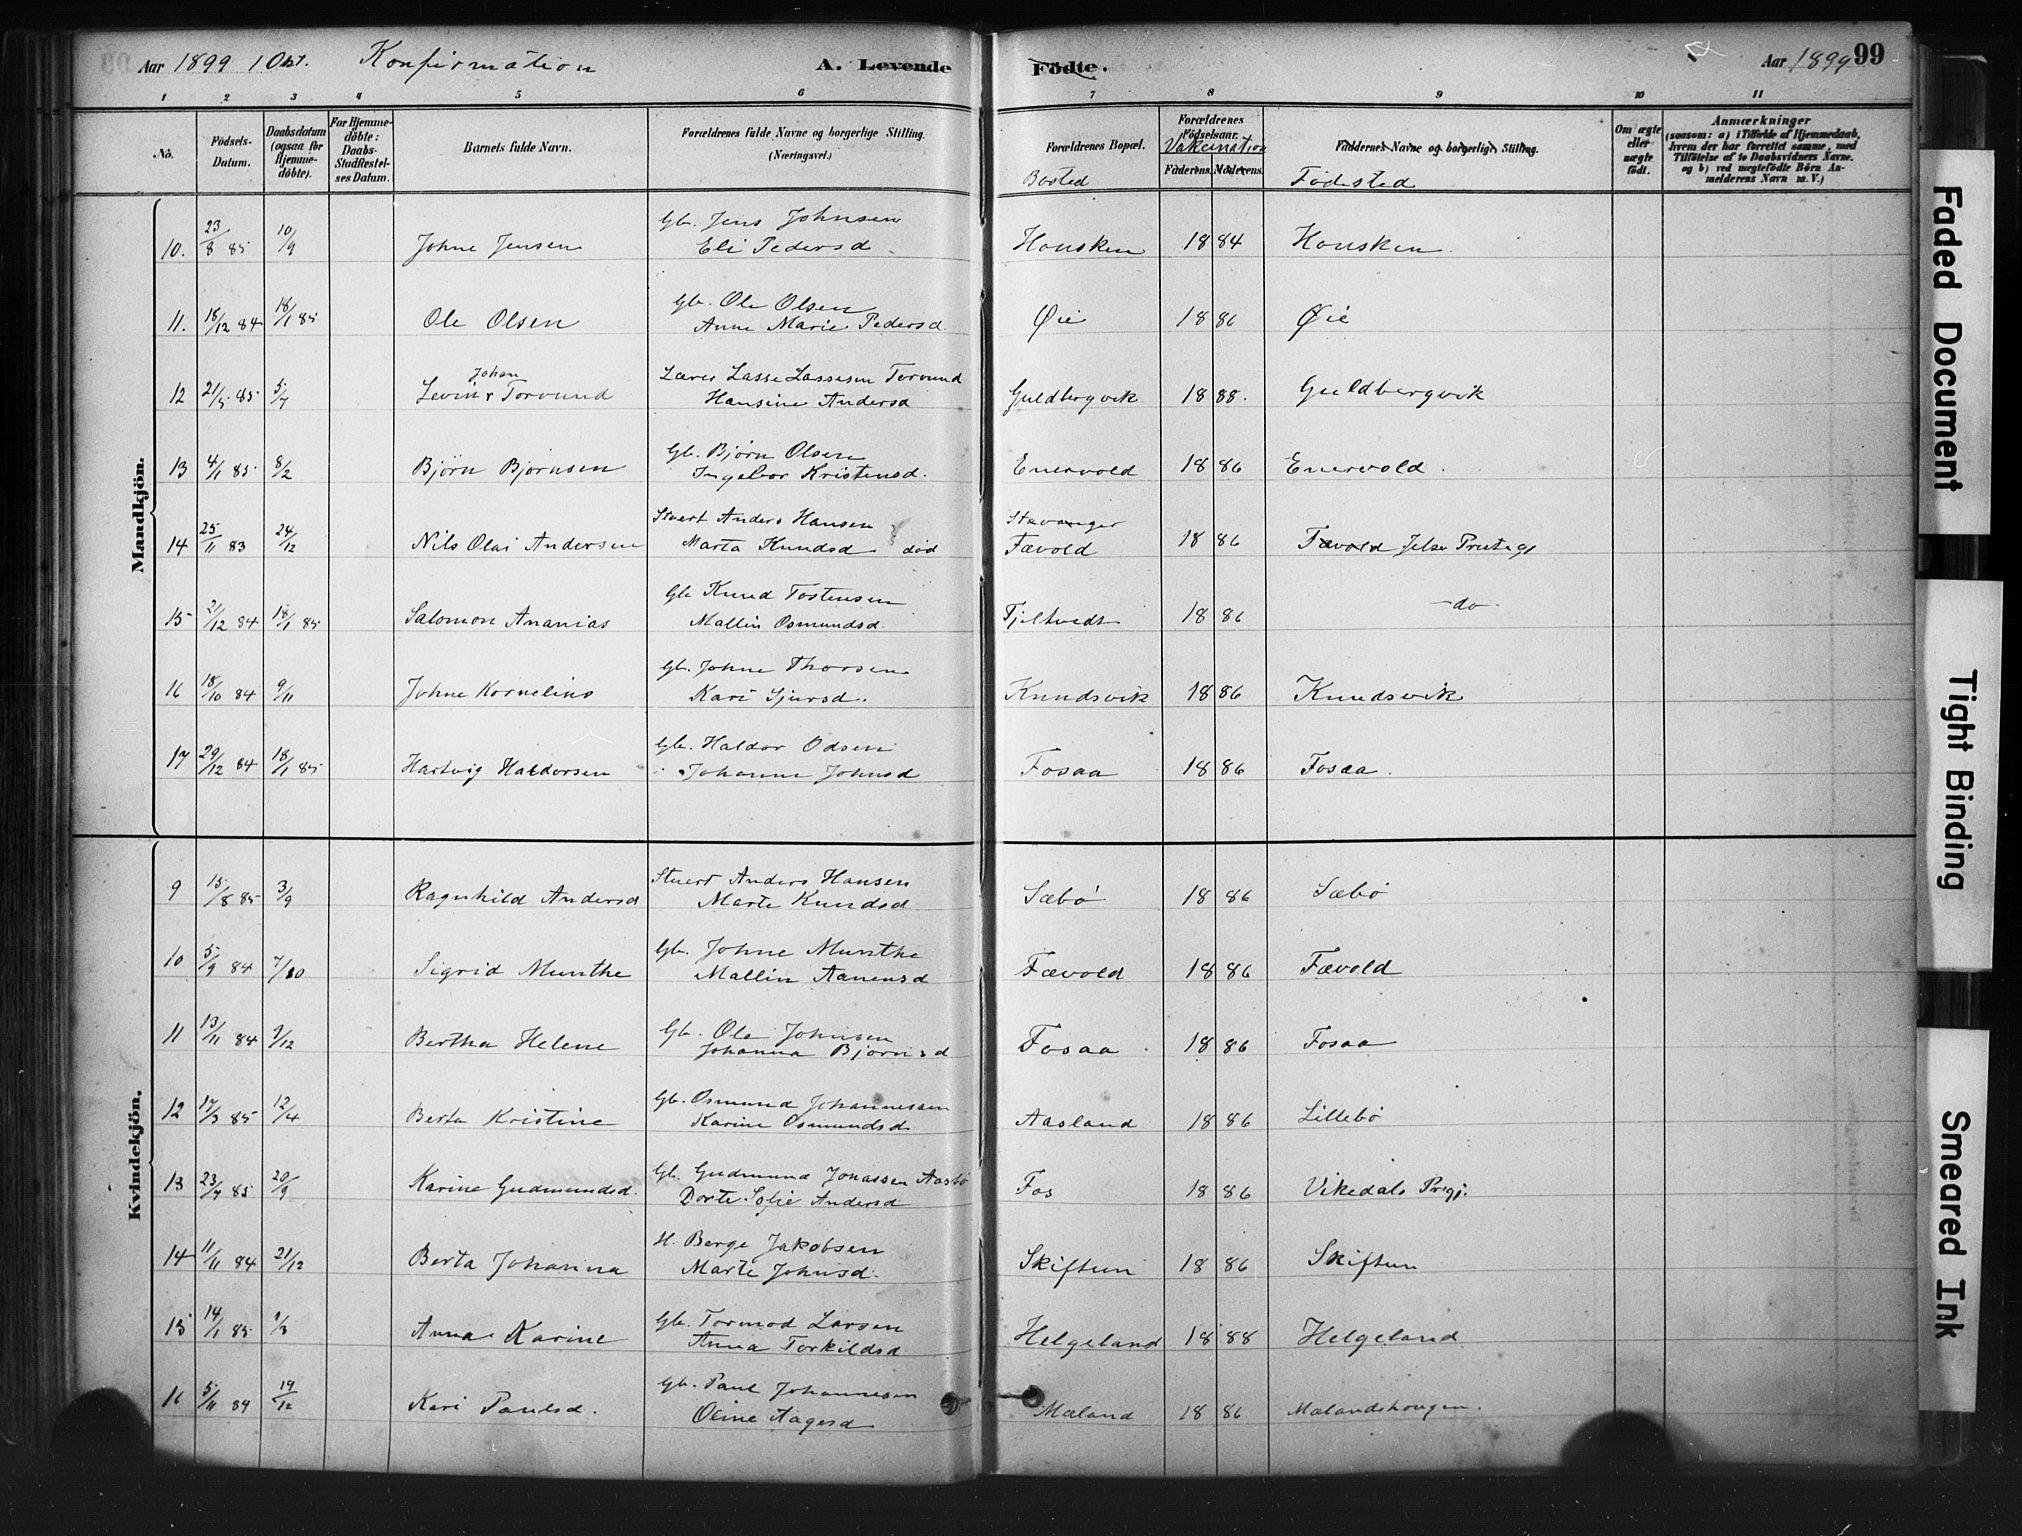 Aar 1899 1 Okt. Konfirmation A. Levende Födte. Aar 1899 99
1 2 3 4 5 6 7 8 9 10 11
No. Födsels-Datum. Daabsdatum (ogsaa for Hjemmedöbte). For Hjemmedöbte: Daabs-Stadfæstelses Datum. Barnets fulde Navn. Forældrenes fulde Navne og borgerlige Stilling. (Næringsvei.) Forældrenes Bopæl. Bosted Forældrenes Födselsaar. Vakcination Faderens. Moderens. Faddernes Navne og borgerlige Stilling. Födested Om ægte eller uægte födt. Anmærkninger (saasom: a) i Tilfælde af Hjemmedaab, hvem der har forrettet samme, med Tilföielse af to Daabsvidners Navne, og b) ved uægtefödte Börn Anmelderens Navn m. V.)
Mandkjön.
10. 23/8 85 10/9 Johne Jensen Gb. Jens Johnsen Housken 18 84 Housken
Eli Pedersd
11. 18/12 84 18/1 85 Ole Olsen Gb. Ole Olsen Øie 18 86 Øie
Anne Marie Pedersd
12 21/5 85 5/7 Levin Johan Torvund Lærer Lasse Lassesen Torvund Guldbergvik 18 88. Guldbergvik
Hansine Andersd
13 4/1 85 8/2 Bjørn Bjørnsen Gb. Bjørn Olsen Enervold 18 86 Enervold
Ingebor Kristensd.
14 25/11 83 24/12 Nils Olai Andersen Stuert Anders Hansen Stavanger
Marta Knudsd død Fævold 18 86 Fævold Jelse Prestegj
15 2/12 84 18/1 85 Salomon Ananias Gb Knud Tostensen Fjeltvedt 18 86 -do-
Mallin Osmundsd.
16 18/10 84 9/11 Johne Kornelius Gb. Johne Thorsen Knudsvik 18 86 Knudsvik
Kari Sjursd.
17 29/12 84 18/1 85 Hartvig Haldorsen Gb. Haldor Odsen Fosaa 18 86 Fosaa.
Johanne Johnsd
Kvindekjön.
9 15/8 85 3/9 Ragnhild Andersd Stuert Anders Hansen Sæbø 18 86 Sæbø
Marte Knudsd
10 5/9 84 7/10 Sigrid Munthe Gb. Johne Munthe Fævold 18 86 Fævold
Mallin Aanensd
11 13/11 84 7/12 Bertha Helene Gb. Ole Johnsen Fosaa 18 86 Fosaa
Johanna Bjørnsd
12 17/3 85 12/4 Berta Kristine Gb. Osmund Johannessen Aasland 18 86 Lillebø
Karine Osmundsd
13 23/7 85 20/9 Karine Gudmundsd. Gb. Gudmund Jonassen Aasbø Fos 18 86 Vikedals Prgj.
Dorte Sofie Andersd
14 11/11 84 21/12 Berta Johanna H. Berge Jakobsen Skiftun 18 86 Skiftun
Marte Johnsd.
15 14/1 85 1/3 Anna Karine Gb. Tormod Larsen Helgeland 18 88 Helgeland
Anna Torkildsd
16 5/11 84 19/12 Kari Paulsd. Gb. Paul Johannesen Mæland 18 86 Mælandshougen.
Oline Aagesd
Faded Document
Tight Binding
Smeared Ink